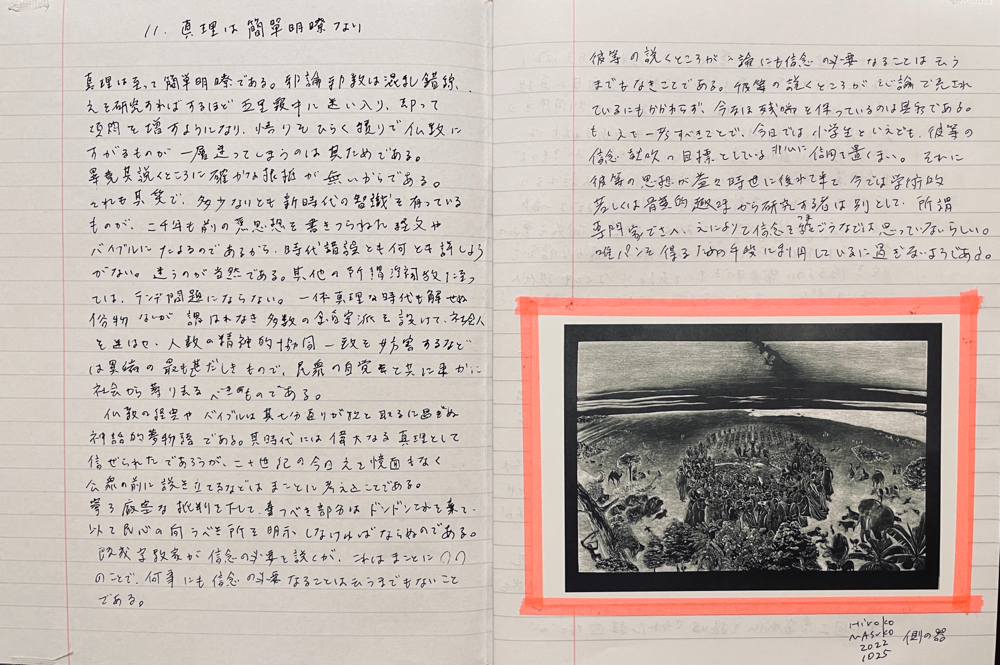 11. 真理は簡単明瞭なり
真理は至って簡単明瞭である。邪論邪教は混乱錯綜、
之を研究すればするほど五里霧中に迷い入り、却って
煩悶を増すようになり、悟りをひらく積りで仏教に
すがるものが一層迷ってしまうのは其ためである。
畢竟其説くところに確かな根拠が無いからである。
それも其筈で、多少なりとも新時代の智識を有っている
ものが、二千年も前の旧思想を書きつらねた経文や
バイブルにたよるのであるから、時代錯誤とも何とも評しよう
がない。迷うのが当然である。其他の所謂淫祠教に至っ
ては、テンデ問題にならない。一体真理な時代も解せぬ
俗物なが 謂はれなき多数の宗派を設けて、社会人
を迷はせ、人類の精神的協同一致を妨害するなど
は異端の最も甚だしきもので、民衆の自覚と共に速かに
社会から葬り去るべきものである。
仏教の経典やバイブルは其七分通りが取るに足らぬ
神話的夢物語である。其時代には偉大なる真理として
信ぜられたであろうが、二十世紀の今日之を臆面もなく
公衆の前に説き立てるなどはまことに考えることである。
寧ろ厳密な批判を下して、棄つべき部分はドンドンこれを棄て、
以て民心の向うべき所を明示しなければならぬのである。
既成宗教家が信念の必要を説くが、これはまことに
のことで、何事にも信念の必要なることは云うまでもないこと
である。
彼等の説くところが論にも信念の必要なることは云う
までもなきことである。彼等の説くところが論で売され
ているにもかかわらず、今なほ残喘を保っているのは
もって一考すべきことで、今日では小学生といえども、彼等の
信念鼓吹の目標としている非仏に信用を置くまい。それに
彼等の思想が益々時世に後れて来て、今では学術的
若しくは骨董的趣味から研究する者は別として、所謂
専門家でさへ、之によりて信念を繋ごうなどは思っていならしい。
唯パンを得るための手段に利用しているに過ぎないようである。
HIROKO
MASUKO
2022
1025
側の器